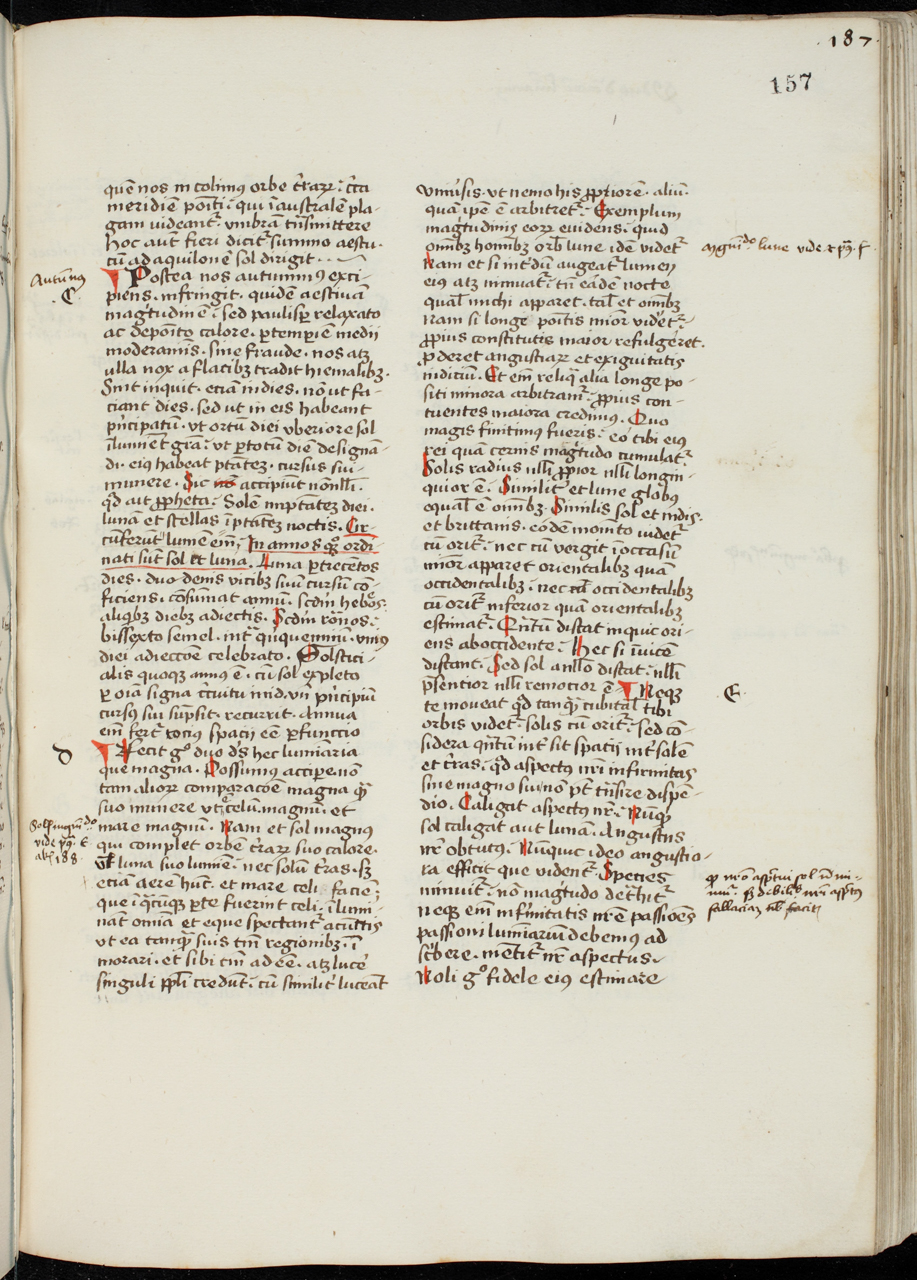 187
157
quē nos incolimus orbe t̄rarꝝ. c̄tra
meridiē poñti. qui ī australē pla-
gam videant᷑. vmbrā tn̄smittere
hoc aūt fieri dicit᷑. summo aestu.
cū ad aquilonē sol dirigit.
Postea nos autumnꝰ exci-
piens. infringit quidē aestiuā
magitudinē. sed paulisꝑ relaxato
ac deposito calore. ꝑ temꝑiē medii
moderaminis. sine fraude. nos atꝫ
ulla nox a flatibꝫ tradit hiemalibꝫ.
Sint inquit. eciam in dies. nō ut fa-
ciant dies. sed ut in eis habeant
pͥncipatū. vt ortū diei vberiore sol
illumīet grā. vt ꝑ totū diē designā-
di. eiꝰ habeat ptātez. cursus sui-
munere. Sic accipiut nōnlli.
qd ait ꝓpheta. Solē in ptātez diei.
lunā et stellas ī ptātez noctis. Cir-
cūferut lumē eīm. In annos qꝫ ordi-
nati sūt sol et luna. Luna ꝑ trecetos
dies. duo denis vicibꝫ suū cursū cō-
ficiens. cōsummat annū. scdm hebos.
aliqbꝫ diebꝫ adiectis. Scdm rōnos.
bissexto semel. int᷑ qinquenniū. vniꝰ
diei adieccōe celebrato. Solstici-
alis quoqꝫ annꝰ ē. cū sol expleto
ꝑ oīa signa c̄cuitu in id. vn̄ pͥncipiū
cursꝰ sui sūpsit. recurrit. Annua
eīm fert᷑ tociꝰ spacij eē ꝑfunccio
Fecit gͦ duo ds̄ hec lumīaria
que magna. Possumus accipe nō
tam aliorꝝ comparacōe magna qͣ
suo munere ut ē celū magnū. et
mare magnū. Nam et sol magnus
qui complet orbē t̄rarꝝ suo calore.
vl̄ luna suo lumīe. nec solū t̄ras. sꝫ
eciā aerē hūc. et mare celi faciē.
que ī qcūqꝫ ꝑte fuerint celi. illumi-
nāt omīa et eque spectant᷑ a cūctis
vt ea tanqͣ suis tm̄ regionibꝫ. ī
morari. et sibi tm̄ adeē. atꝫ lucē
singuli ppli credūt. cū similit᷑ luceāt
vniūsis. vt nemo his ꝓpriorē. aliū.
quā ipē ē arbitret᷑. Exemplum
magitudinis eorꝝ euidens. quid
omībꝫ homībꝫ orbis lune idē videt᷑
Nam et si int᷑dū augeat᷑ lumen
eiꝰ atꝫ minuat᷑. tn̄ eadē nocte
qualis michi apparet. talis et omībꝫ
Nam si longe poñtis mīor videt᷑.
ꝓpius constitutis maior refulgēret.
ꝓderet angustiarꝝ et exiguitatis
indiciū. Et eīm reliqͣ alia longe po-
siti minora arbitramᷣ. ꝓpius con-
tuentes maiora credimꝰ. Quo
magis finitimꝰ fueris. eo tibi eiꝰ
rei quā cernis magitudo cumulat᷑
Solis radius nlli ꝓpior nlli longin-
quior ē. Similit᷑ et lune globꝰ
equalis ē omībꝫ. Similis sol et indis.
et brittanis. eodē momēto videt᷑
cū orit᷑. nec cū vergit ī occasū
mīor apparet orientalibꝫ quā
occidentalibꝫ. nec occidentalibꝫ
cū orit᷑ inferior quā orientalibꝫ
estimat᷑. Qn̄tū distat inquit ori-
ens ab occidente. Hec sibi īuicē
distant. Sed sol a nllo distat. nlli
p̄sentior nlli remocior ē. Neqꝫ
te moueat qd tanqͣ cubitalis tibi
orbis videt᷑. solis cū orit᷑. sed cō-
sidera qn̄tū int᷑ sit spacij int᷑ solē
et t̄ras. qd aspectꝰ nr̄i infirmitas
sine magno sui nō pt tn̄sire dispē-
dio. Caligat aspectꝰ nr̄. Nūqͥd
sol caligat aut lunā. Angustus
nr̄ obtutꝰ. Nūquid ideo angustio-
ra efficit que vident᷑. Species
minuit᷑. nō magitudo det᷑hit᷑
Neqꝫ eīm infirmitatis nr̄e passiōes
passioni lumīariū debemus ad
sc̄bere. mētit᷑ nr̄ aspectus.
Noli gͦ fidele eiꝰ estimare
Autūnꝰ
C
D
ab 188
E